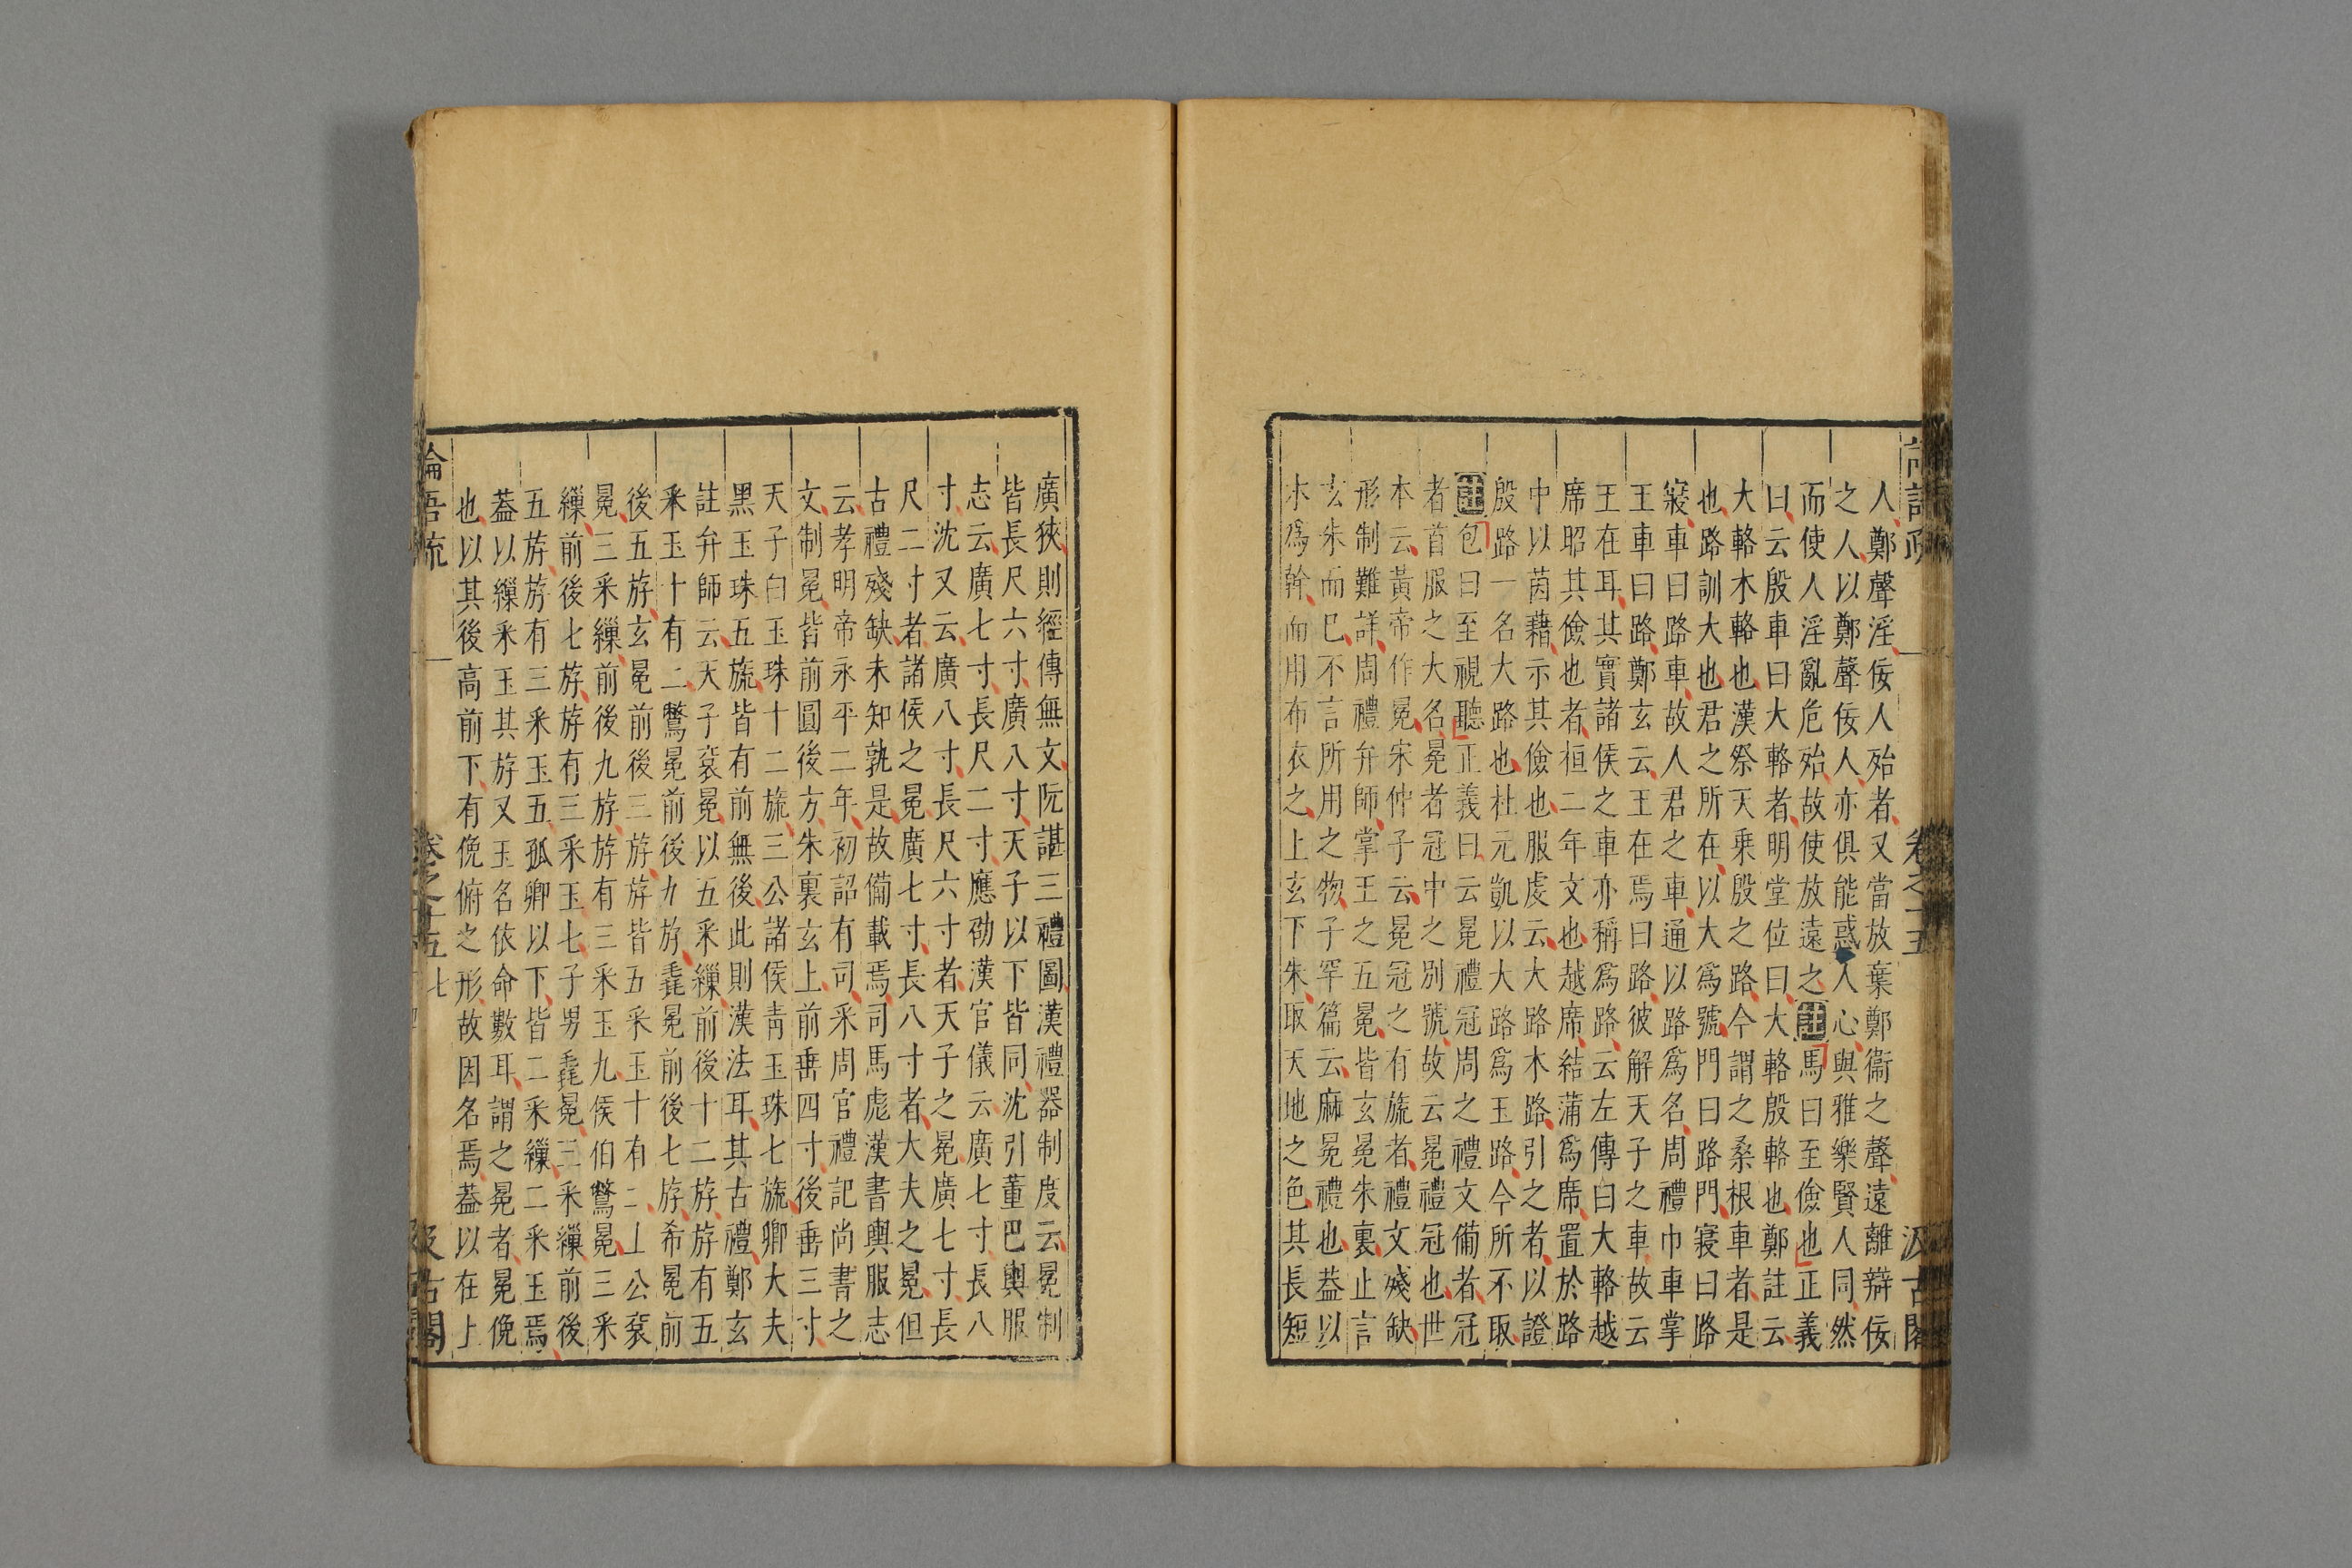 論語疏 卷之十五 汲古閣
人鄭聲淫佞人殆者又當放棄鄭衞之聲遠離辯佞
之人以鄭聲佞人亦俱能惑人心與雅樂賢人同然
而使人淫亂危殆故使放遠之註馬曰至儉也正義
曰云殷車曰大輅者明堂位曰大輅殷輅也鄭註云
大輅木輅也漢祭天乘殷之路今謂之桑根車者是
也路訓大也君之所在以大爲號門曰路門寢曰路
寢車曰路車故人君之車通以路爲名周禮巾車掌
王車曰路鄭玄云王在焉曰路彼解天子之車故云
王在耳其實諸侯之車亦稱爲路云左傳曰大輅越
席昭其儉也者桓二年文也越席結蒲爲席置於路
中以茵藉示其儉也服虔云大路木路引之者以證
殷路一名大路也杜元凱以大路爲玉路今所不取
註包曰至視聽正義曰云冕禮冠周之禮文備者冠
者首服之大名冕者冠中之別號故云冕禮冠也世
本云黃帝作冕宋仲子云冕冠之有旒者禮文殘缺
形制難詳周禮弁師掌王之五冕皆玄冕朱裏止言
玄朱而已不言所用之物子罕篇云麻冕禮也葢以
木爲幹而用布衣之上玄下朱取天地之色其長短
廣狹則經傳無文阮諶三禮圖漢禮器制度云冕制
皆長尺六寸廣八寸天子以下皆同沈引董巴輿服
志云廣七寸長尺二寸應劭漢官儀云廣七寸長八
寸沈又云廣八寸長尺六寸者天子之冕廣七寸長
尺二寸者諸侯之冕廣七寸長八寸者大夫之冕但
古禮殘缺未知孰是故備載焉司馬彪漢書輿服志
云孝明帝永平二年初詔有司采周官禮記尚書之
文制冕皆前圓後方朱裏玄上前垂四寸後垂三寸
天子白玉珠十二旒三公諸侯青玉珠七旒卿大夫
黑玉珠五旒皆有前無後此則漢法耳其古禮鄭玄
註弁師云天子袞冕以五采繅前後十二斿斿有五
采玉十有二鷩冕前後九斿毳冕前後七斿希冕前
後五斿玄冕前後三斿斿皆五采玉十有二上公袞
冕三采繅前後九斿斿有三采玉九侯伯鷩冕三采
繅前後七斿斿有三采玉七子男毳冕三采繅前後
五斿斿有三采玉五孤卿以下皆二采繅二采玉焉
葢以繅采玉其斿又玉名依命數耳謂之冕者冕俛
也以其後高前下有俛俯之形故因名焉葢以在上
論語疏 卷之十五 七 汲古閣